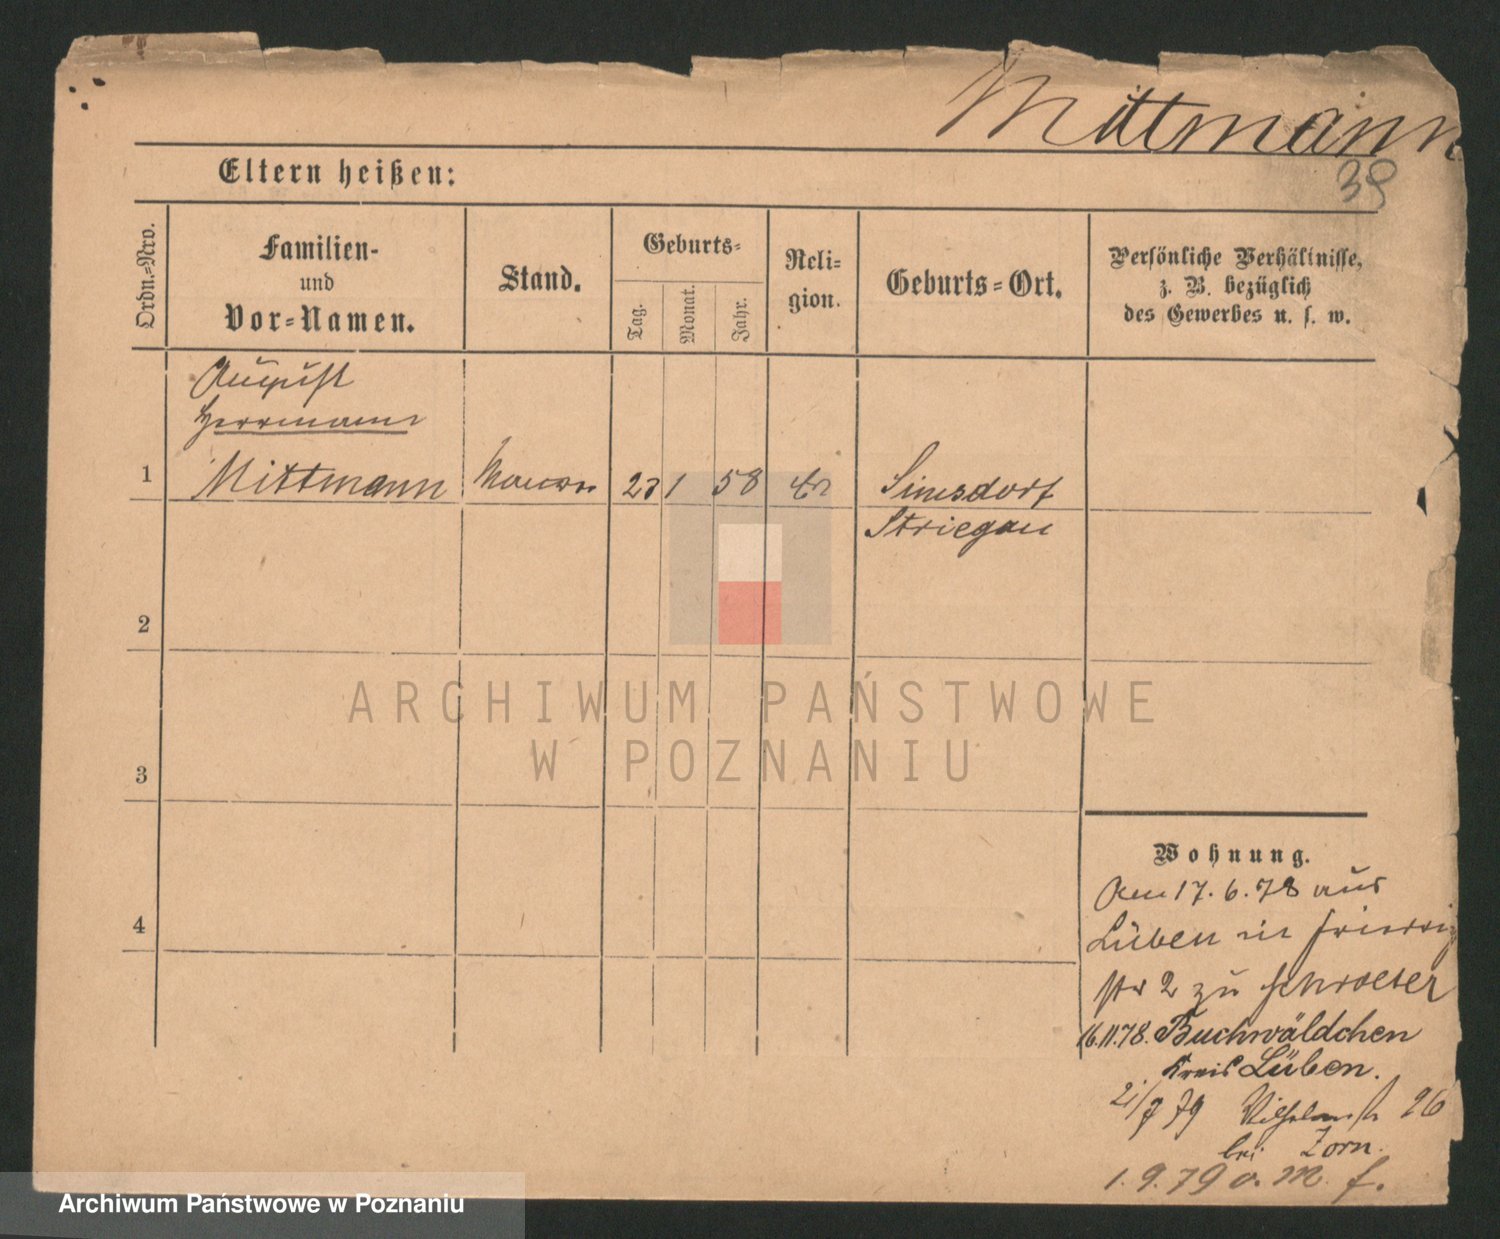 Mittmann
39
Eltern heißen:
Ordn.=Nro.
Familien-
und
Vor=Namen.
Stand.
Geburts=
Tag.
Monat.
Jahr.
Reli=
gion.
Geburts=Ort.
Persönliche Verhältnisse,
z. B. bezüglich
des Gewerbes u. s. w.
August
Herrmann
1 Mittmann Maurer 23 1 58 Simsdorf
Striegau
2
3
4
ARCHIWUM PAŃSTWOWE
W POZNANIU
Wohnung.
Am 17. 6. 78 aus
Lüben in
str 2 zu Schroeter
16.11.78. Buchwäldchen
Kreis Lüben.
79 Wilhelmstr 26
bei Zorn.
1. 9. 79 o. M. f.
Archiwum Państwowe w Poznaniu